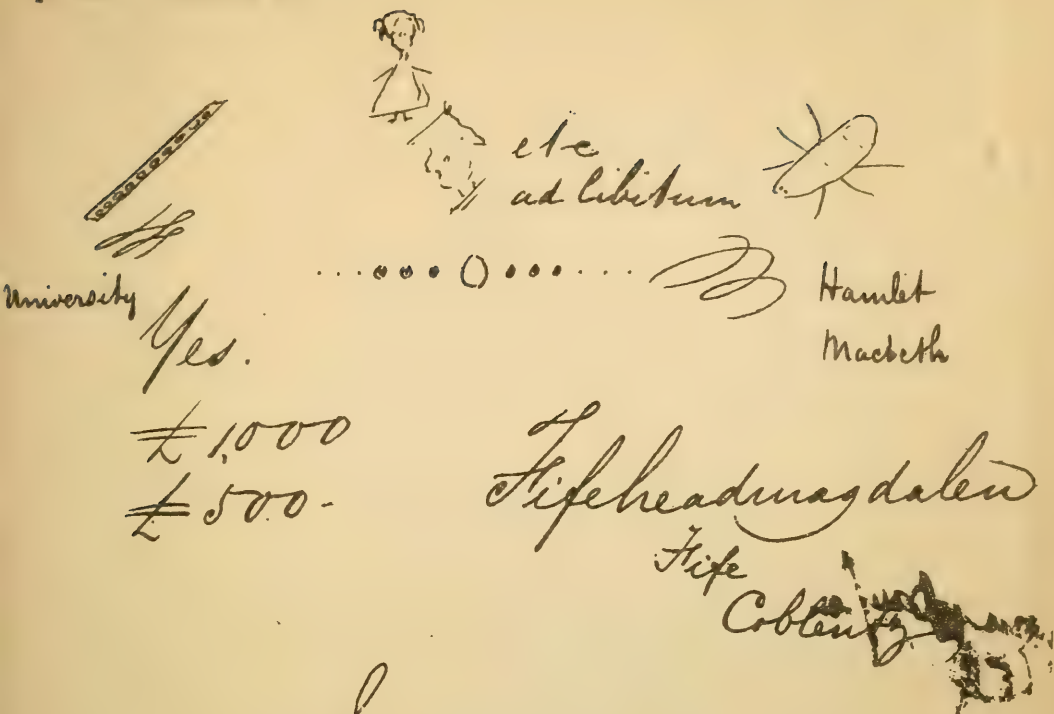 etc
ad libitum
University
Yes.
Hamlet
Macbeth
£1,000
£500-
Fifeheadmagdalen
Fife
Coblentz